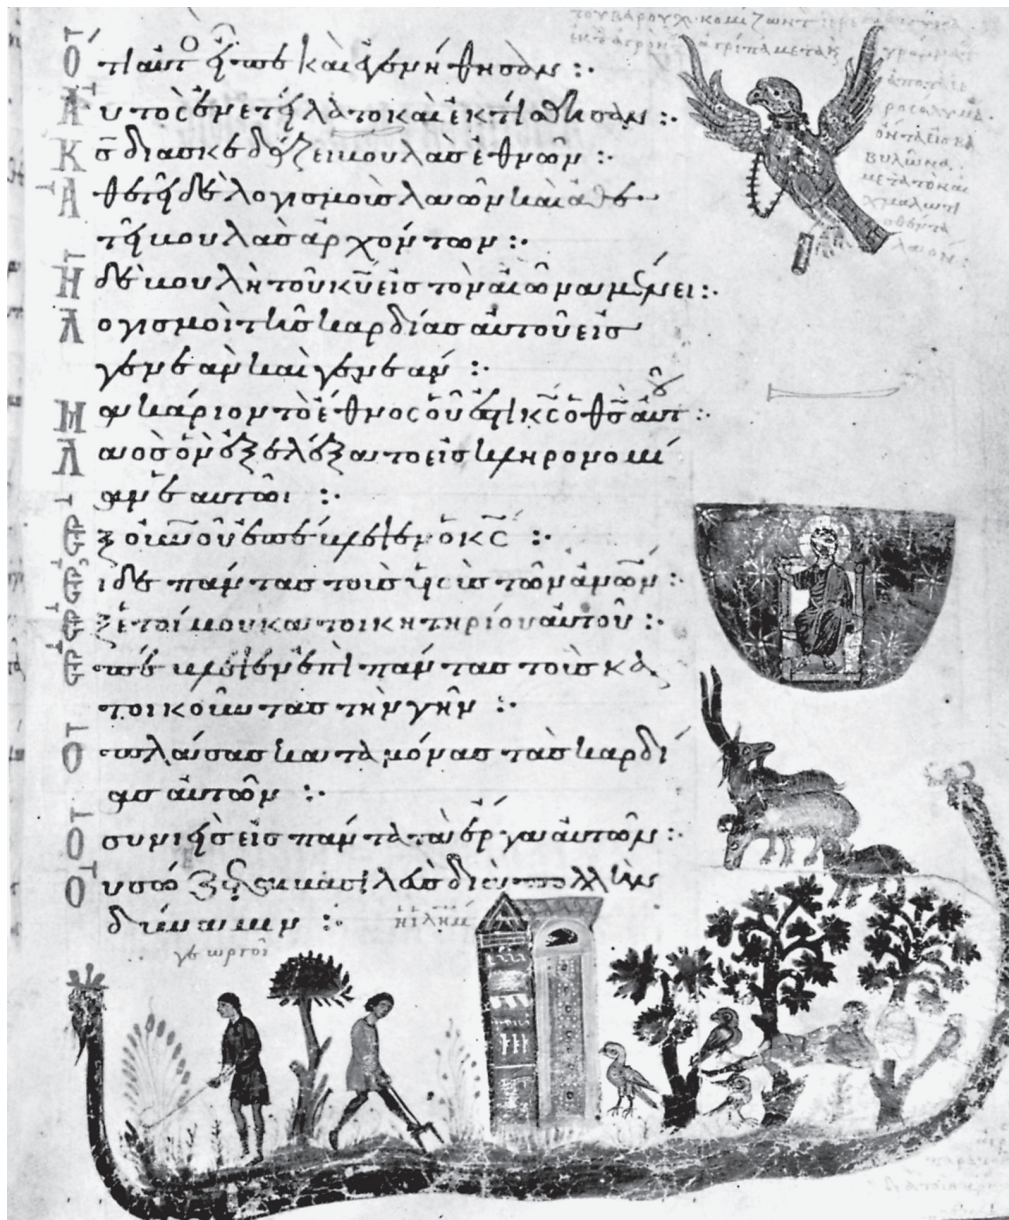 τοῦ βαροὺχ κομίζων
Ὅτι αὐτ εἶπε καὶ ἐγενήθησαν :·
Αὐτὸς ἐνετείλατο καὶ ἐκτίσθησαν :·
Κς διασκεδάζει βουλὰς ἐθνῶν :·
Ἀθετεῖ δὲ λογισμοὺς λαῶν καὶ ἀθε
τεῖ βουλὰς ἀρχόντων :·
Ἡ δὲ βουλὴ τοῦ κυ εἰς τὸν αἰῶνα μένει :·
Λογισμοὶ τῆς καρδίας αὐτοῦ εἰς
γενεὰν καὶ γενεάν :·
Μακάριον τὸ ἔθνος οὗ ἐστὶ κς ὁ θς αὐτου :·
Λαὸς ὃν ἐξελέξατο εἰς κληρονομί
αν ἑαυτῶι :·
Ἐξ οὐνοῦ ἐπέβλεψεν ὁ κς :·
Εἶδε πάντας τοὺς υἱοὺς τῶν ἀνων :·
Ἐξ ἑτοίμου κατοικητηρίου αὐτοῦ :·
Ἐπέβλεψεν ἐπὶ πάντας τοὺς κα
τοικοῦντας τὴν γῆν :·
Ὁ πλάσας κατὰ μόνας τὰς καρδί
ας αὐτῶν :·
Ὁ συνιεὶς εἰς πάντα τὰ ἔργα αὐτῶν :·
Οὐ σώζεται βασιλεὺς διὰ πολλὴν
δύναμιν :·
γεωργοὶ
ὄντα εἰς βα
βυλῶνα
μετὰ τὸ αι
χμαλωτι
σθέντα
λαόν :